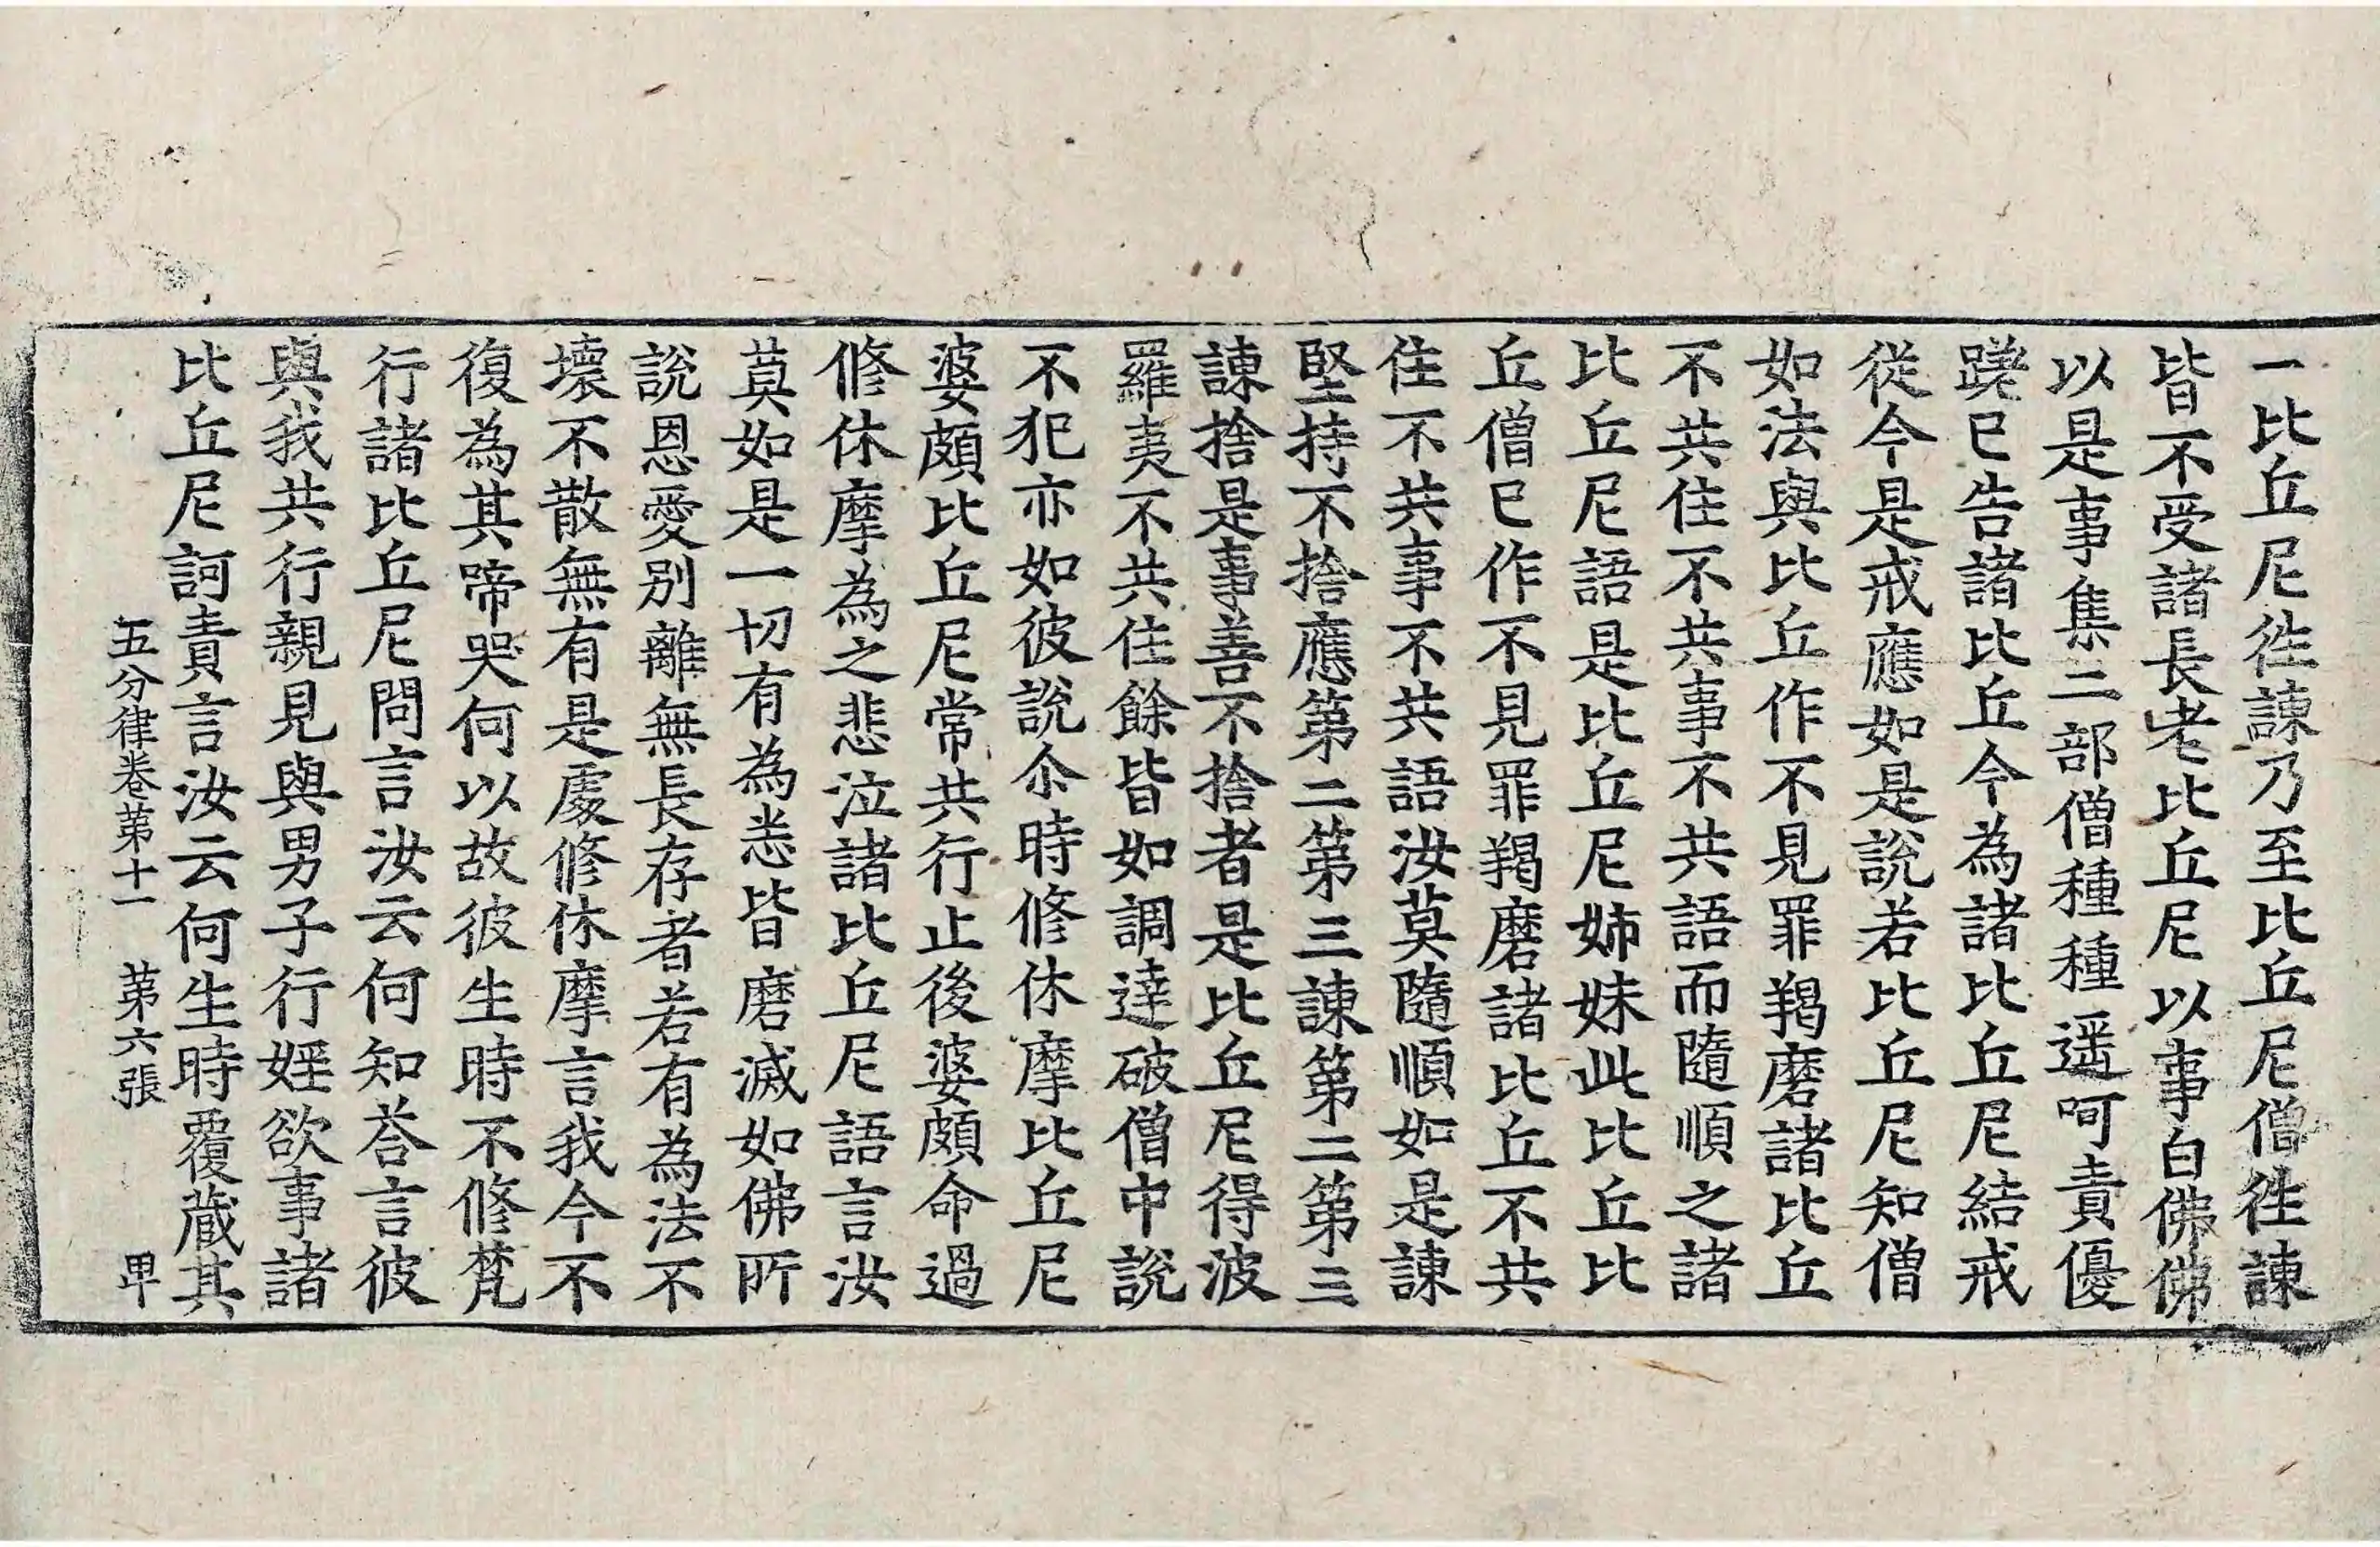 一比丘尼往諫乃至比丘尼僧往諫
皆不受諸長老比丘尼以事白佛佛
以是事集二部僧種種遥呵責優
蹉已告諸比丘今為諸比丘尼結戒
從今是戒應如是說若比丘尼知僧
如法與比丘作不見罪羯磨諸比丘
不共住不共事不共語而隨順之諸
比丘尼語是比丘尼姉妹此比丘比
丘僧已作不見罪羯磨諸比丘不共
住不共事不共語汝莫隨順如是諫
堅持不捨應第二第三諫第二第三
諫捨是事善不捨者是比丘尼得波
羅夷不共住餘皆如調達破僧中說
不犯亦如彼說尒時修休摩比丘尼
婆頗比丘尼常共行止後婆頗命過
修休摩為之悲泣諸比丘尼語言汝
莫如是一切有為恙皆磨滅如佛所
說恩愛別離無長存者若有為法不
壞不散無有是處修休摩言我今不
復為其啼哭何以故彼生時不修梵
行諸比丘尼問言汝云何知荅言彼
與我共行親見與男子行婬欲事諸
比丘尼訶責言汝云何生時覆藏其
五分律卷苐十一　苐六張　毕